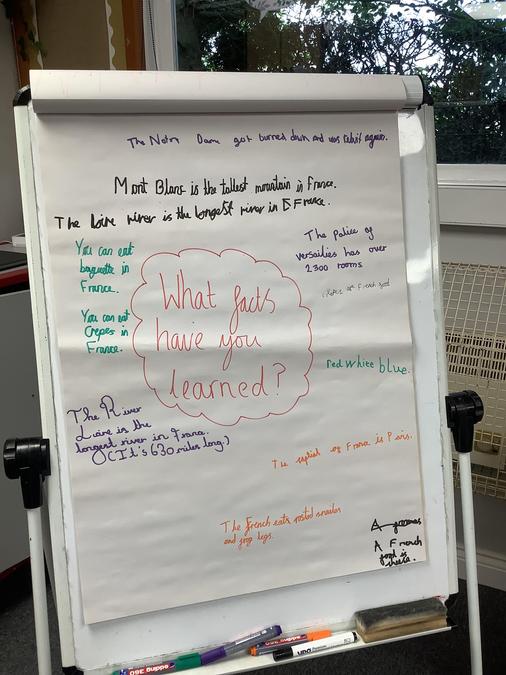 The Notr Dame got burned down and was rebilt again.
Mont Blanc is the tallest mountain in France.
The Loire river is the longest river in France.
You can eat
baguette in
France.
The Palice of
versailles has over
2300 rooms.
French food
You can eat
Crepes in
France.
What facts
have you
learned?
red white blue.
The River
Loire is the
longest river in France.
(It's 630 miles long)
The capital of France is Paris.
The French eats rosted snailes
and frog legs.
A French
food is
edding 360